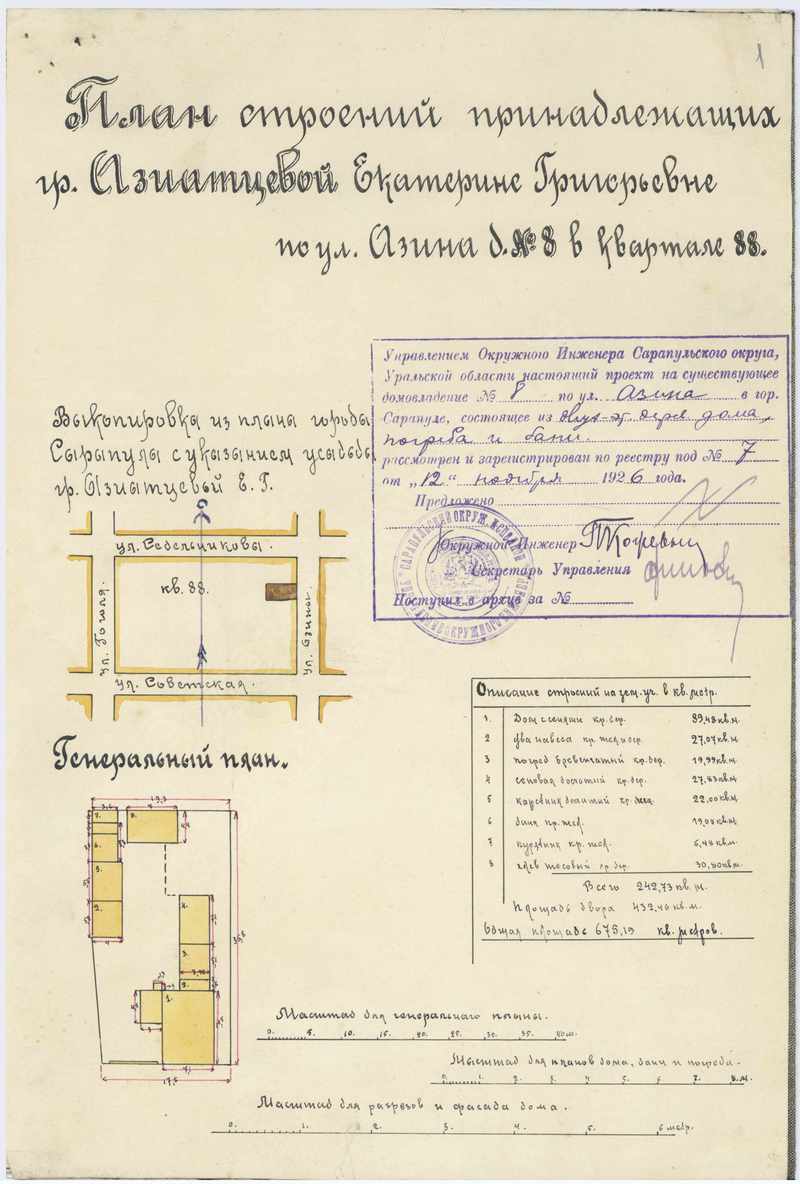 1
План строений принадлежащих
гр. Азиатцевой Екатерине Григорьевне
по ул. Азина д. № 8 в квартале 88.
Управлением Окружного Инженера Сарапульского округа,
Уральской области настоящий проект на существующее
домовладение № 8 по ул. Азина в гор.
Сарапуле, состоящее из двух-эт. дерев. дома,
погреба и бани.
рассмотрен и зарегистрирован по реестру под № 7
от „12“ ноября 1926 года.
Предложено
Окружной Инженер
Секретарь Управления
Поступил в архив за №
Выкопировка из плана города
Сарапула с указанием усадьбы
гр. Азиатцевой Е. Г.
ул. Седельниковы.
кв. 88.
ул. Гоголя.
ул. Азины.
ул. Советская.
Описание строений на зем. уч. в кв. метр.
1. Дом с сенями кр. дер. 89,48 кв.м.
2 два навеса кр. жел и дер. 27,07 кв.м.
3 погреб бревенчатый кр. дер. 19,99 кв.м.
4 кр. дер. 27,83 кв.м.
5 кр. жел. 22,00 кв.м.
6 баня кр. жел. 19,08 кв.м.
7 курятник кр. жел. 6,48 кв.м.
8 хлев тесовый кр. дер. 30,80 кв.м.
Всего 242,73 кв. м.
Площадь двора 432,46 кв. м.
Общая площадь 675,19 кв. метров.
Генеральный план.
19,3
35,8
17,5
Масштаб для генерального планы.
0. 5. 10. 15. 20. 25. 30. 35. 40 м.
Масштаб для планов дома, бани и погреба.
0. 1. 2. 3. 4. 5. 6. 7. 8. м.
Масштаб для разрезов и фасада дома.
0. 1. 2. 3. 4. 5. 6 метр.